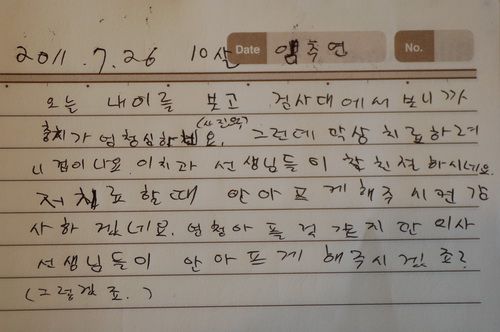 2011.7.26 10살 Date 임츄연 No.
오늘 내이를 보고 검사대에서 보니까
충치가 엄청심하네요. (사진왁) 그런데 막상 치료하려
니 겁이나요. 이치과 선생님들이 참친절하시네요.
저치료할때 안아프게해주시면 감
사하겠네요. 엄청아플것같지만 의사
선생님들이 안아프게 해주시겠죠?
(그렇겠죠.)